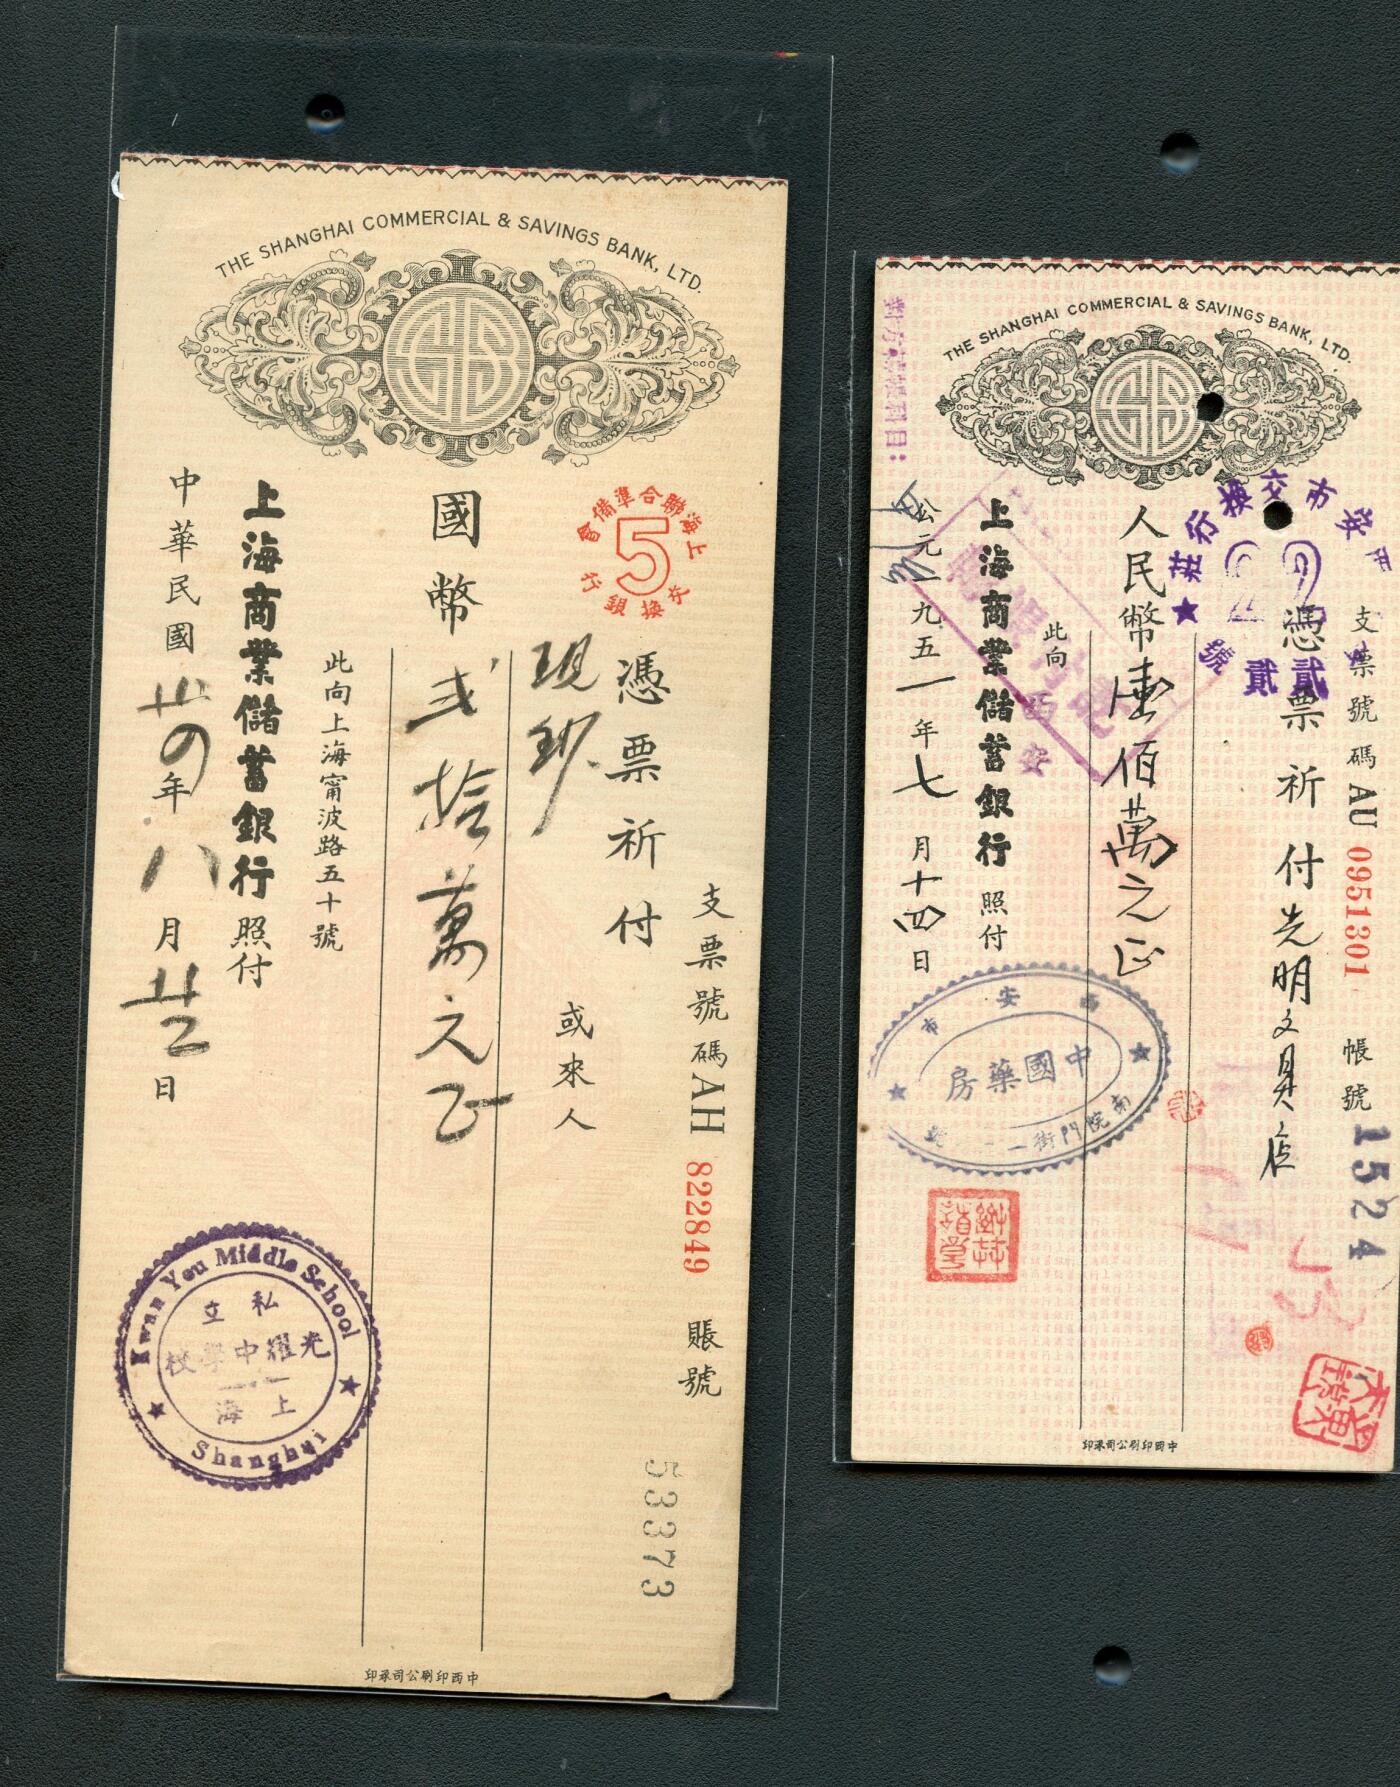 THE SHANGHAI COMMERCIAL & SAVINGS BANK, LTD.
上海聯合準備會
5
交換銀行
支票號碼AH 822849 賬號
53373
憑票祈付
現鈔
或來人
國幣弍拾萬元正
此向上海甯波路五十號
上海商業儲蓄銀行照付
中華民國卅四年八月廿三日
Kwan You Middle School
私立
光耀中學校
上海
Shanghai
中西印刷公司承印
THE SHANGHAI COMMERCIAL & SAVINGS BANK, LTD.
支票號碼AU 0951301 帳號
1524
憑票祈付光明文具店
市交換行莊
貳貳號
人民幣壹佰萬元正
此向
西安
上海商業儲蓄銀行照付
公元一九五一年七月十四日
科目:
西安市
中國藥房
南院門街
中西印刷公司承印